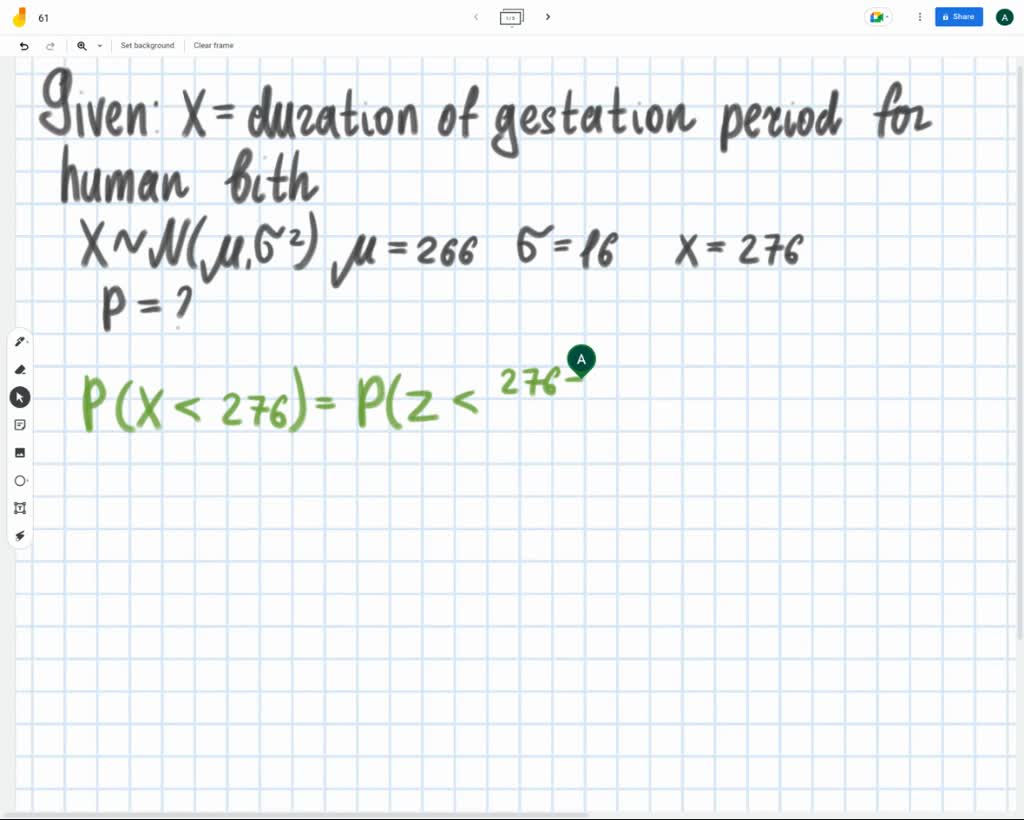 61
1/5
Share
A
Set background
Clear frame
Given: X = duration of gestation period for
human bith
X ~ N(μ, σ²) μ = 266 σ = 16 x = 276
P = ?
A
P(X < 276) = P(Z < 276 -